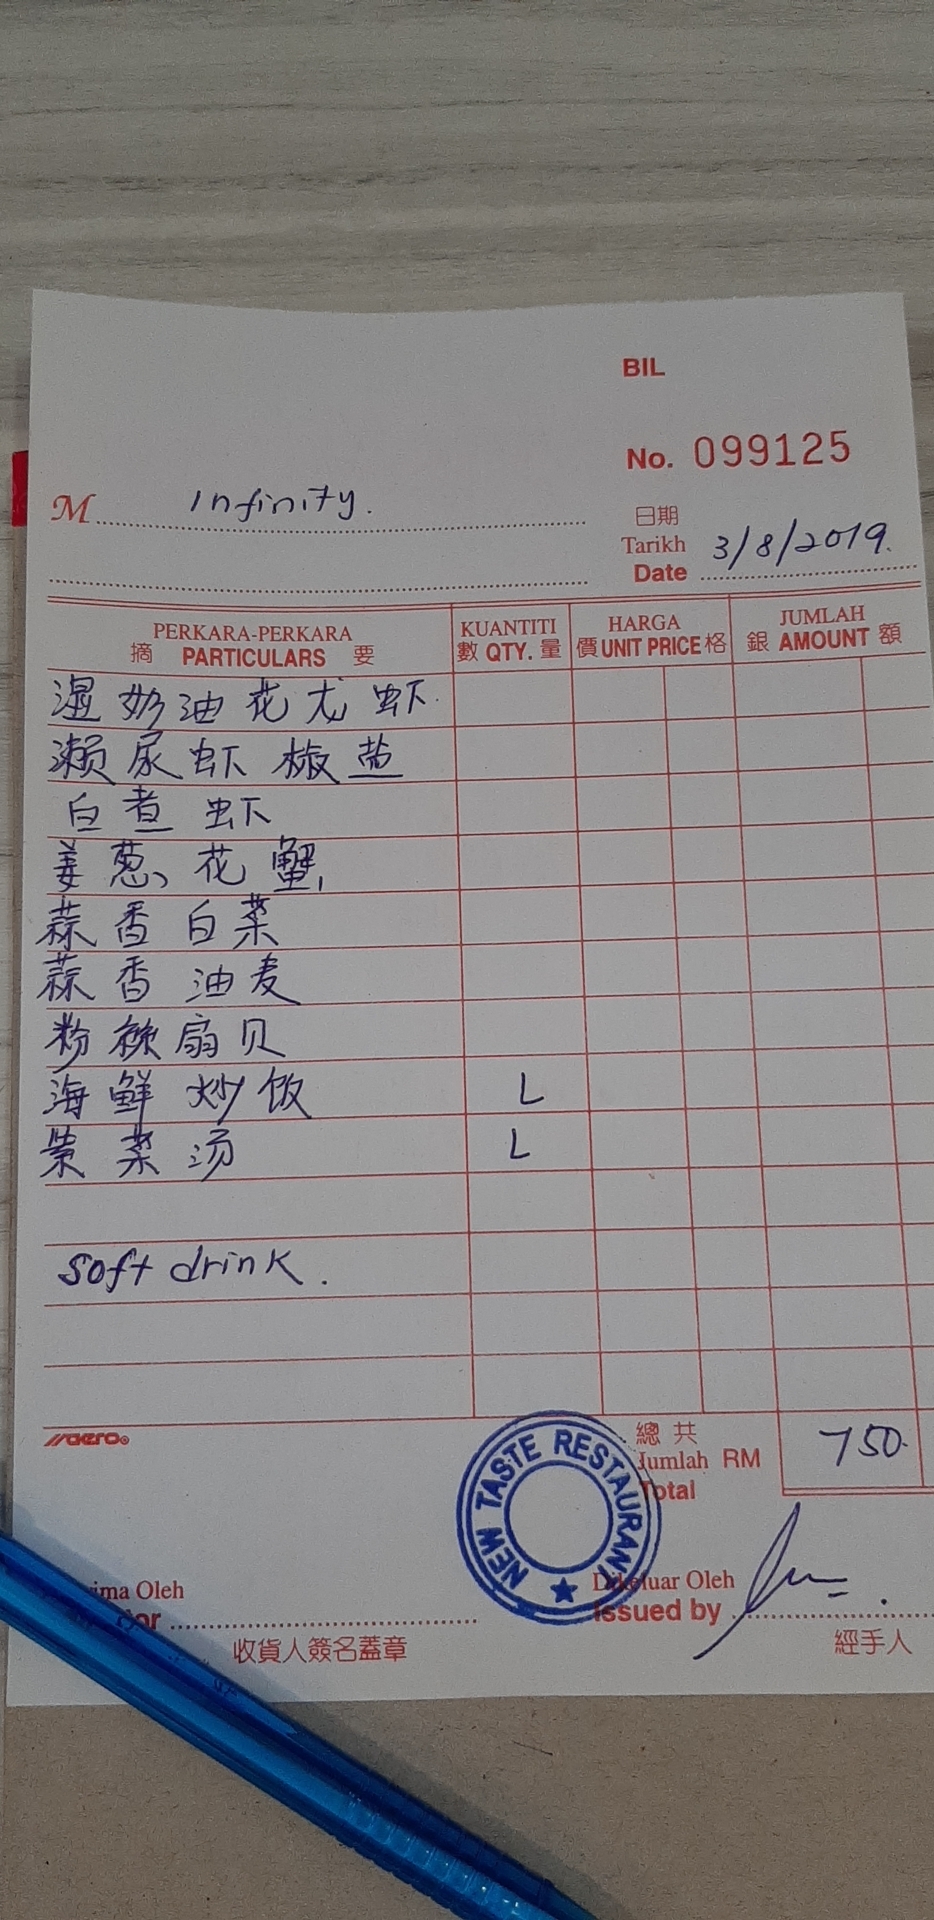 BIL
No. 099125
M Infinity.
日期
Tarikh
Date 3/8/2019.
PERKARA-PERKARA
摘 PARTICULARS 要
KUANTITI
數 QTY. 量
HARGA
價 UNIT PRICE 格
JUMLAH
銀 AMOUNT 額
湿奶油花尤虾
濑尿虾椒盐
白煮虾
姜葱、花蟹
蒜香白菜
蒜香油麦
粉丝扇贝
海鲜炒饭 L
紫菜汤 L
soft drink.
aero
總共
Jumlah RM
Total
750
NEW TASTE RESTAURANT
ima Oleh
or
收貨人簽名蓋章
Dikeluar Oleh
Issued by
經手人